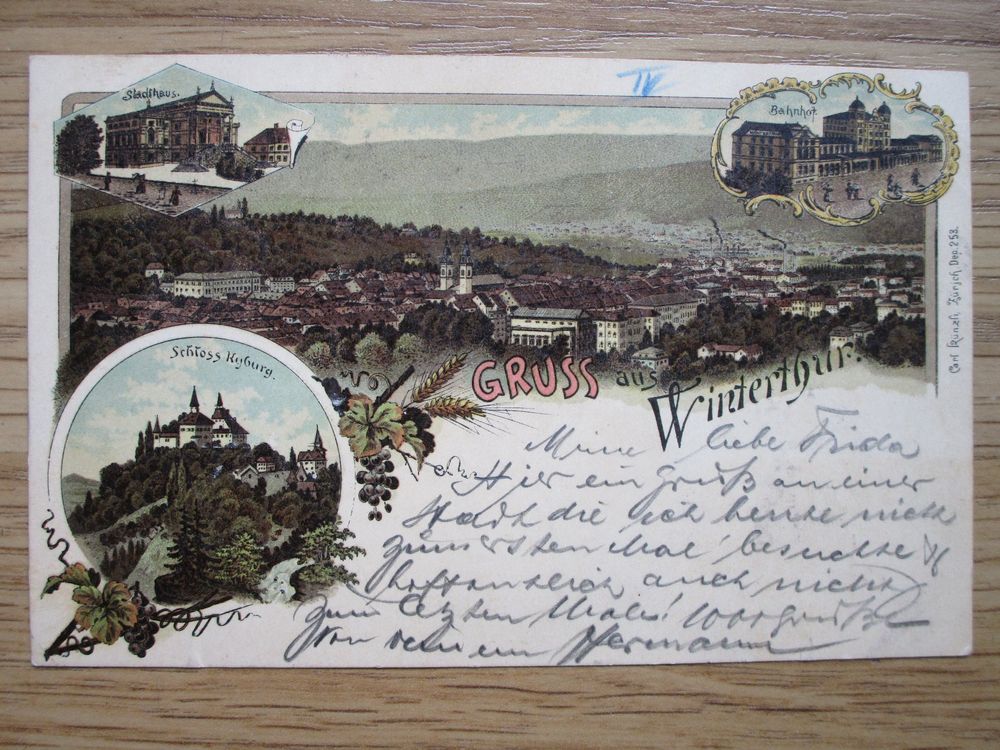 IV
Stadthaus.
Bahnhof.
Schloss Kyburg.
GRUSS aus Winterthur.
Carl Künzli, Zürich Dep. 253.
Meine liebe Frida
Hier ein Gruß an einer
Stadt die ich heute nicht
zum ersten Mal besuchte &
hoffentlich auch nicht
zum letzten Male! 1000 Grüße
Von dein em Hermann